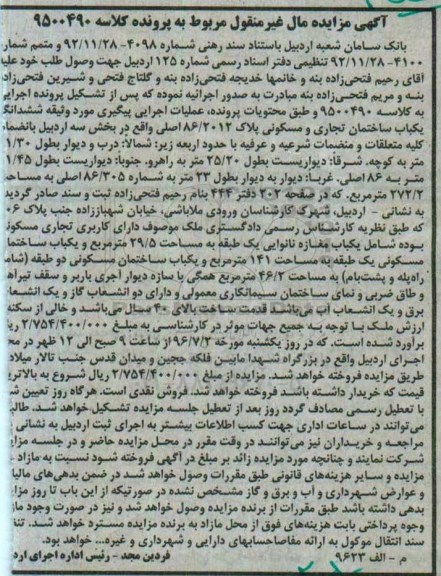 آگهی مزایده مال غیرمنقول مربوط به پرونده کلاسه ۹۵۰۰۴۹۰
بانک سامان شعبه اردبیل باستناد سند رهنی شماره ۴۰۹۸- ۹۲/۱۱/۲۸ و متمم شماره
۴۱۰۰- ۹۲/۱۱/۲۸ تنظیمی دفتر اسناد رسمی شماره ۱۲۵ اردبیل جهت وصول طلب خود علیه
آقای رحیم فتحی‌زاده بنه و خانمها خدیجه فتحی‌زاده بنه و گلتاج فتحی و شیرین فتحی‌زاده
بنه و مریم فتحی‌زاده بنه مبادرت به صدور اجرائیه نموده که پس از تشکیل پرونده اجرایی
به کلاسه ۹۵۰۰۴۹۰ و طبق محتویات پرونده، عملیات اجرایی پیگیری مورد وثیقه ششدانگ
یکباب ساختمان تجاری و مسکونی پلاک ۸۶/۲۰۱۲ اصلی واقع در بخش سه اردبیل بانضمام
کلیه متعلقات و منضمات شرعیه و عرفیه با حدود اربعه زیر: شمالا: درب و دیوار بطول ۱۱/۳۰
متر به کوچه. شرقا: دیواریست بطول ۲۵/۲۰ متر به راهرو. جنوبا: دیواریست بطول ۱۱/۴۵
متر به ۸۶ اصلی. غربا: دیوار به دیوار بطول ۲۳ متر به شماره ۸۶/۳۰۵ اصلی به مساحت
۲۷۲/۲ مترمربع. که در صفحه ۲۰۲ دفتر ۴۴۴ بنام رحیم فتحی‌زاده ثبت و سند صادر گردیده
به نشانی - اردبیل، شهرک کارشناسان ورودی ملاباشی، خیابان شهباززاده جنب پلاک ۶
که طبق نظریه کارشناس رسمی دادگستری ملک موصوف دارای کاربری تجاری مسکونی
بوده شامل یکباب مغازه نانوایی یک طبقه به مساحت ۲۹/۵ مترمربع و یکباب ساختمان
مسکونی یک طبقه به مساحت ۱۴۱ مترمربع و یکباب ساختمان مسکونی دو طبقه (شامل
راه‌پله و پشت‌بام) به مساحت ۴۶/۲ مترمربع همگی با سازه دیوار آجری باربر و سقف تیرآهن
و طاق ضربی و نمای ساختمان سیمانکاری معمولی و دارای دو انشعاب گاز و یک انشعاب
برق و یک انشعاب آب می‌باشد قدمت ساخت بالای ۴۰ سال می‌باشد و خالی از سکنه
ارزش ملک با توجه به جمیع جهات موثر در کارشناسی به مبلغ ۲/۷۵۴/۴۰۰/۰۰۰ ریال
برآورد شده است. که در روز یکشنبه مورخه ۹۶/۷/۲ از ساعت ۹ صبح الی ۱۲ ظهر در محل
اجرای اردبیل واقع در بزرگراه شهدا مابین فلکه ججین و میدان قدس جنب تالار میلاد از
طریق مزایده فروخته خواهد شد. مزایده از مبلغ ۲/۷۵۴/۴۰۰/۰۰۰ ریال شروع به بالاترین
قیمت که خریدار داشته باشد فروخته خواهد شد. فروش نقدی است. هرگاه روز تعیین شده
با تعطیل رسمی مصادف گردد روز بعد از تعطیل جلسه مزایده تشکیل خواهد شد. طالبین
می‌توانند در ساعات اداری جهت کسب اطلاعات بیشتر به اجرای ثبت اردبیل به نشانی
مراجعه و خریداران نیز می‌توانند در وقت مقرر در محل مزایده حاضر و در جلسه مزایده
شرکت نمایند و چنانچه مورد مزایده زائد بر مبلغ در آگهی فروخته شود نسبت به مازاد
مزایده و سایر هزینه‌های قانونی طبق مقررات وصول خواهد شد در ضمن بدهی های مالیاتی
و عوارض شهرداری و آب و برق و گاز مشخص نشده در صورتیکه از این باب تا روز مزایده
بدهی داشته باشد طبق مقررات از برنده مزایده وصول خواهد شد و نیز در صورت وجود مازاد
وجوه پرداختی بابت هزینه‌های فوق از محل مازاد به برنده مزایده مسترد خواهد شد. تنظیم
سند انتقال موکول به ارائه مفاصاحسابهای دارایی و شهرداری و غیره... خواهد بود.
م - الف ۹۶۲۳ فردین مجد - رئیس اداره اجرای